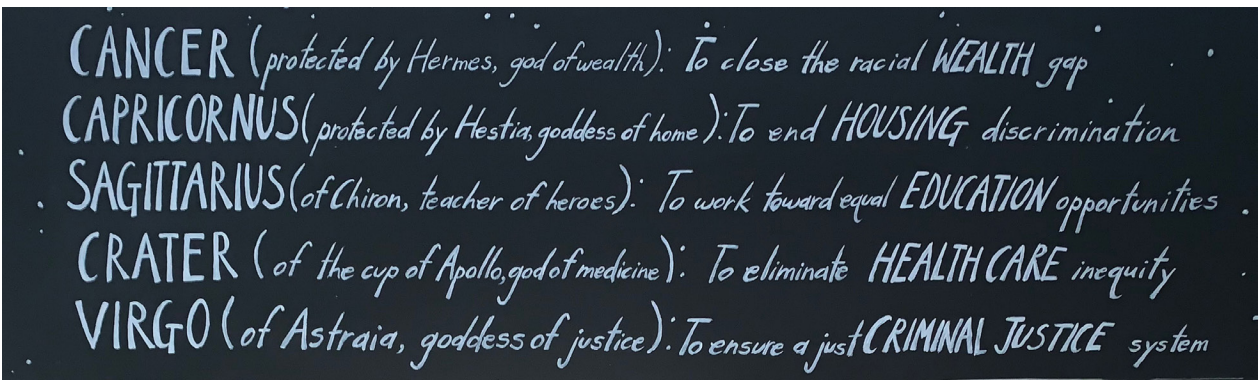 CANCER (protected by Hermes, god of wealth): To close the racial WEALTH gap
CAPRICORNUS (protected by Hestia, goddess of home): To end HOUSING discrimination
SAGITTARIUS (of Chiron, teacher of heroes): To work toward equal EDUCATION opportunities
CRATER (of the cup of Apollo, god of medicine): To eliminate HEALTH CARE inequity
VIRGO (of Astraia, goddess of justice): To ensure a just CRIMINAL JUSTICE system